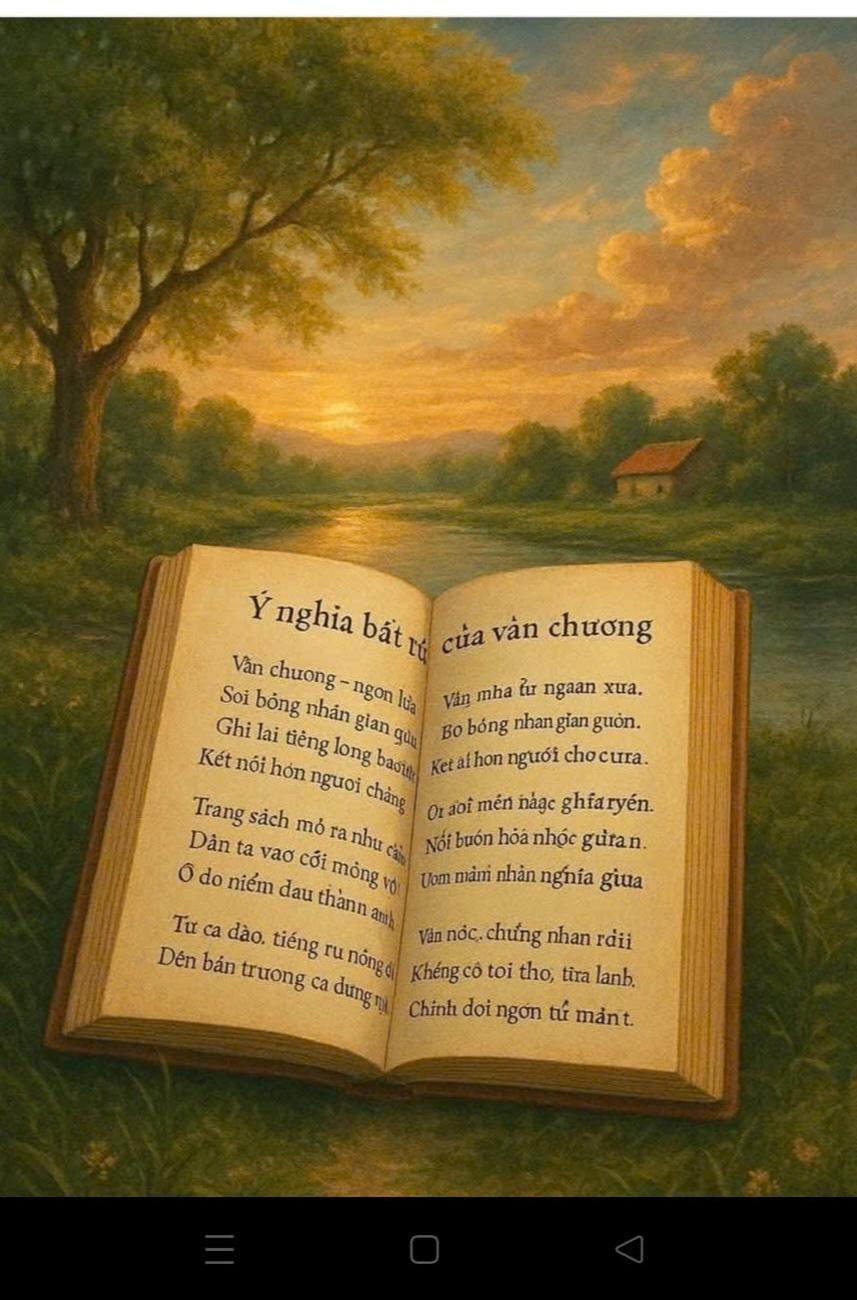 Ý nghia bất rú của vản chương
Vẫn chuong – ngon lửa
Soi bóng nhán gian
Ghi lai tiêng long
Két nôi hón nguoi chăng
Trang sách mỏ ra như
Dản ta vaơ cới mỏng
Ở do niểm dau thànn anh
Tư ca dào. tiéng ru nông
Dên bán truong ca dưng
Văn mha từ ngaan xưa.
Bo bóng nhan gian guón.
Ket ai hon người cho cura.
mến nảạc ghfaryén.
Nổi buón hỏả nhộc gưran.
Uom mầm nhản ngħía giua
Vản nóc,. chưng nhan rdii
Khéng cô toi tho, tira lanh.
Chinh doi ngơn tử mản t.